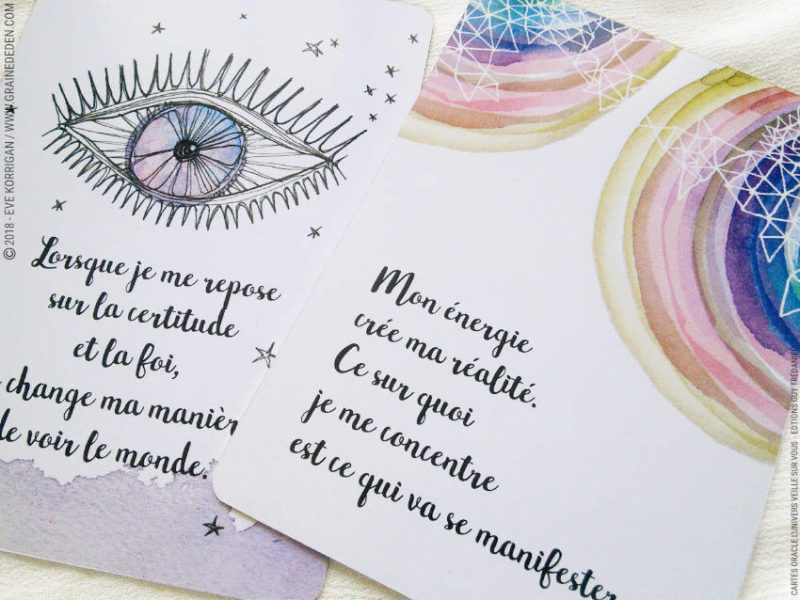 © 2018 - EVE KORRIGAN / WWW.GRAINEDEDEN.COM
Lorsque je me repose
sur la certitude
et la foi,
change ma manièr
de voir le monde.
Mon énergie
crée ma réalité.
Ce sur quoi
je me concentre
est ce qui va se manifester
CARTES ORACLE L'UNIVERS VEILLE SUR VOUS - EDTIONS GUY TRÉDANIEL